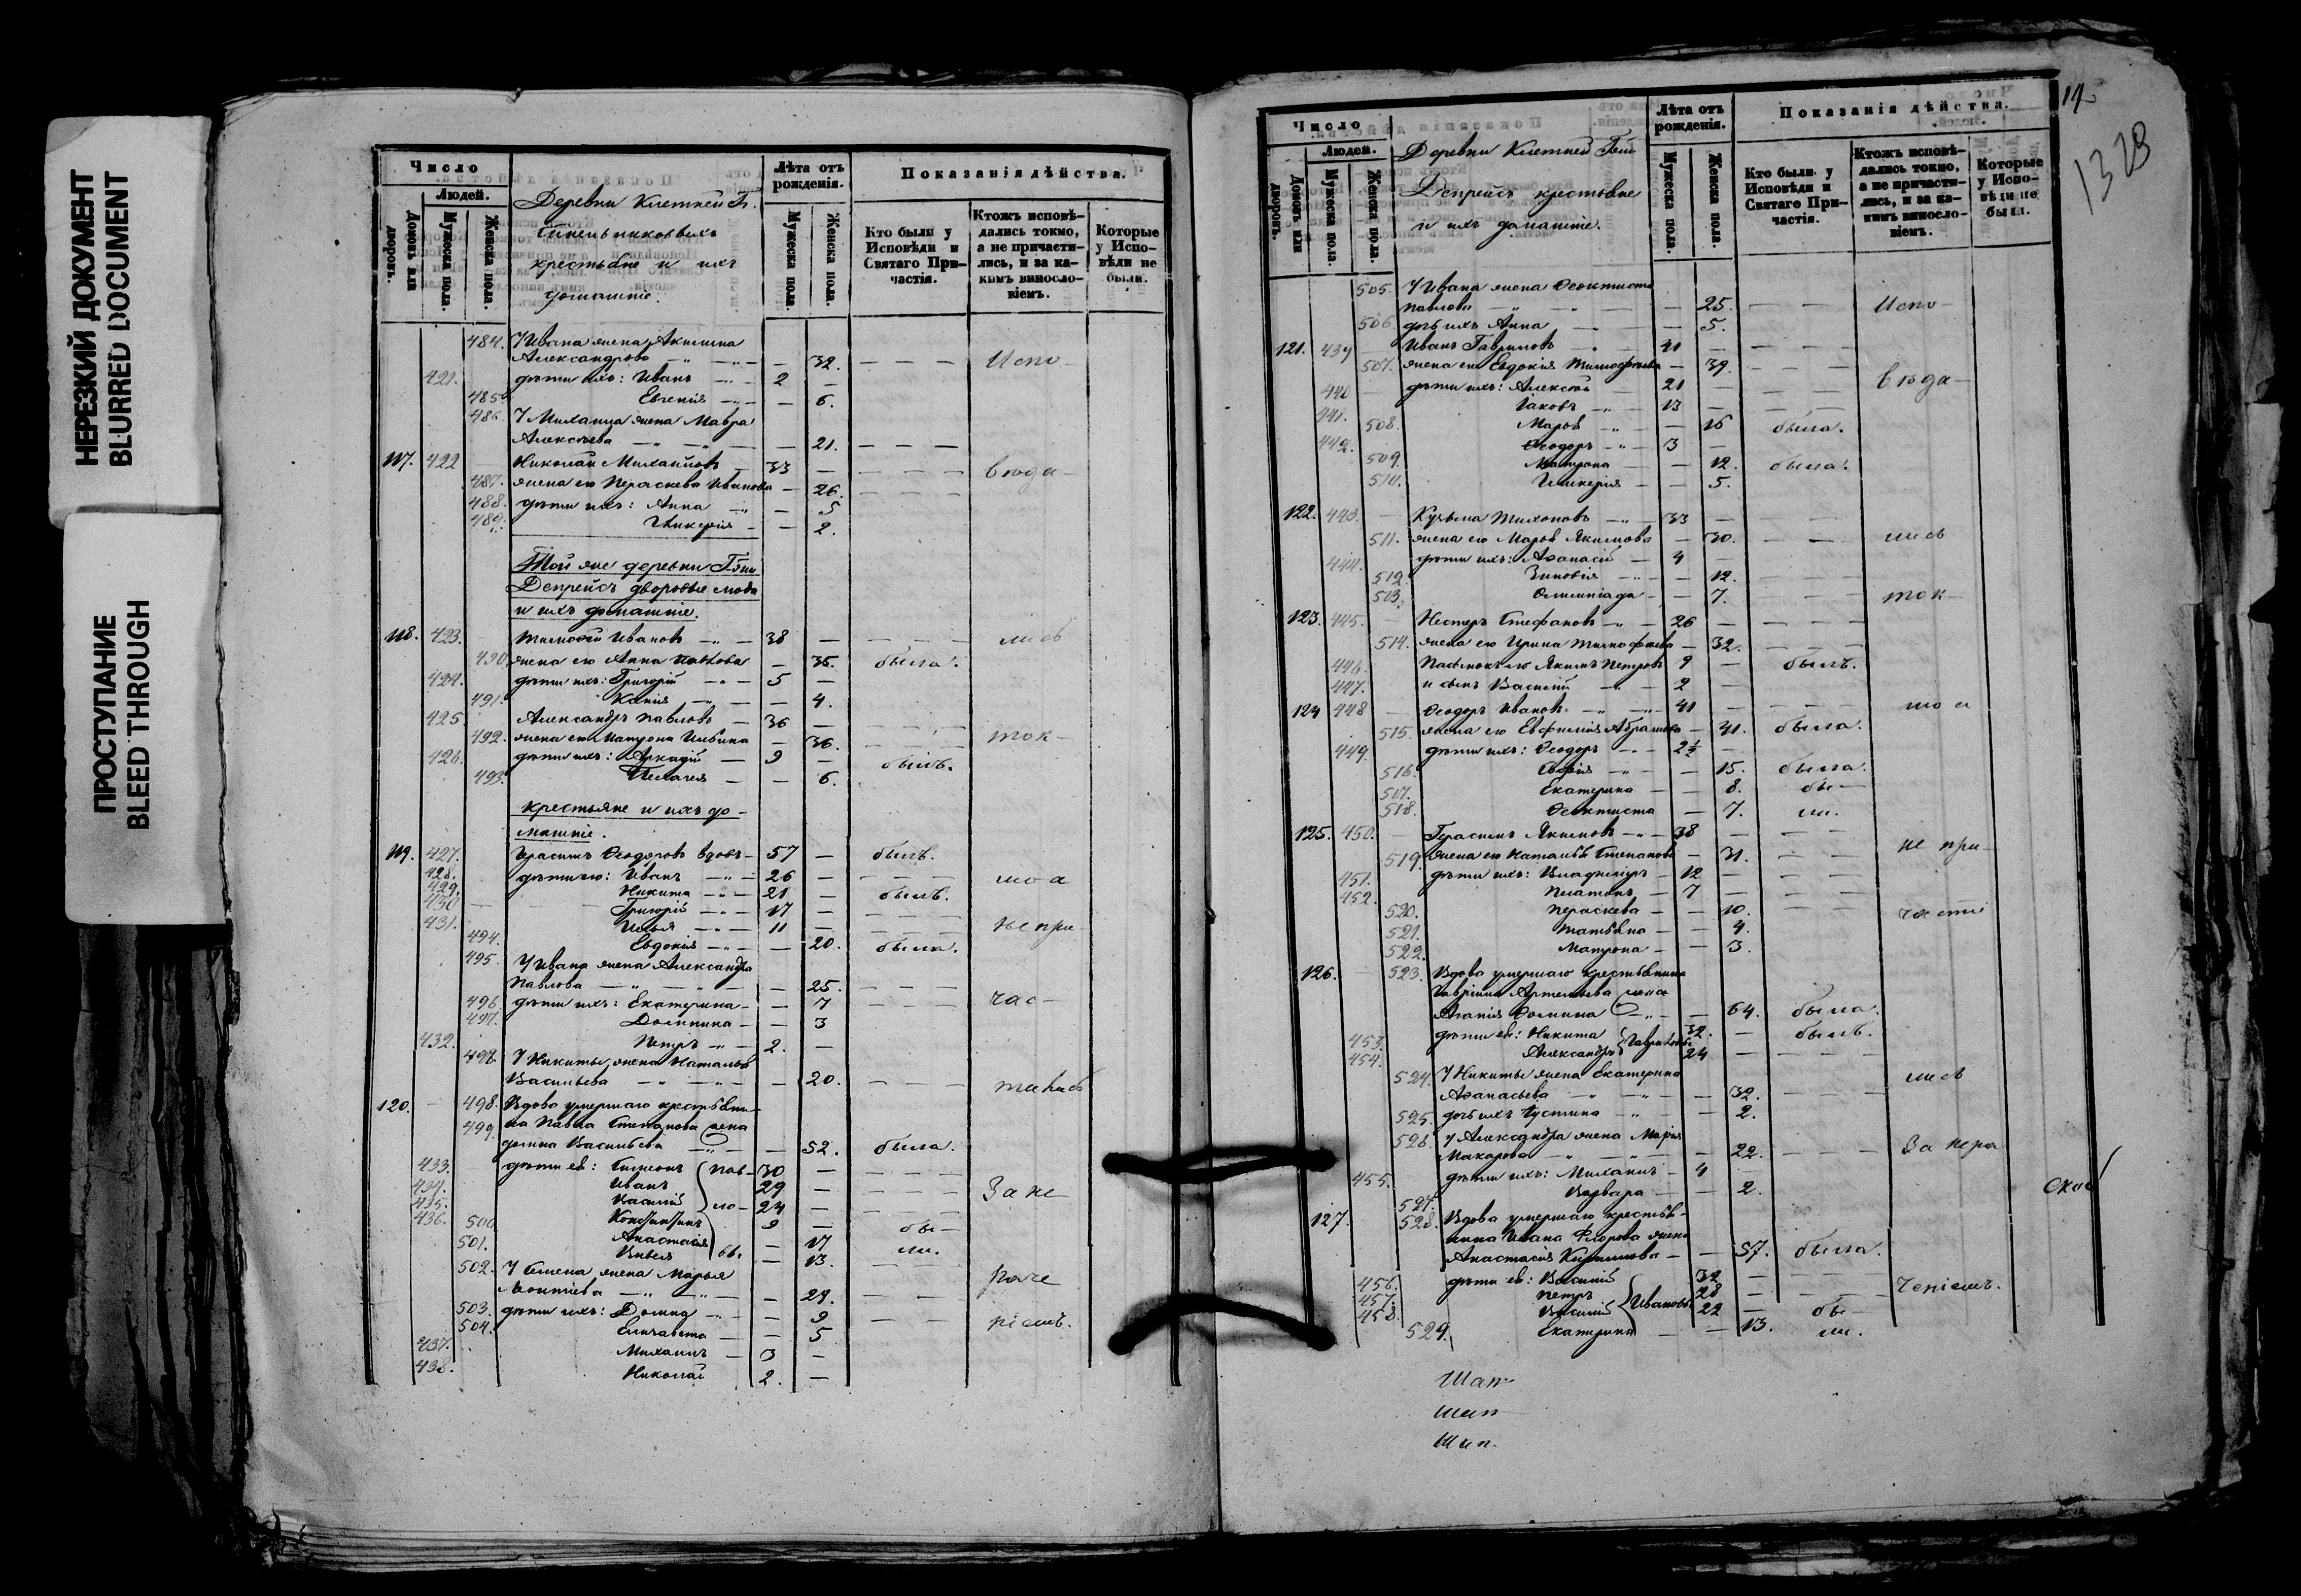 НЕРЕЗКИЙ ДОКУМЕНТ
BLURRED DOCUMENT
ПРОСТУПАНИЕ
BLEED THROUGH
Число
Людей.
Домовъ или дворовъ.
Мужеска пола.
Женска пола.
Деревни Клетней Г.
крестьяне и ихъ
домашніе.
Лѣта отъ рожденія.
Мужеска пола.
Женска пола.
Показанія дѣйства.
Кто были у Исповѣди и Святаго Причастія.
Ктожъ исповѣдались токмо, а не причастились, и за какимъ винословіемъ.
Которые у Исповѣди не были.
484. У Ивана жена Акилина
Александрова — 32. — — — Испо-
421. дѣти ихъ: Иванъ — 2 —
485. Евгенія — 6.
486. У Михаила жена Мавра
Алексѣева — 21. — — —
117. 422 Николай Михайловъ 33 — — — — вѣда-
487. жена его Параскева Иванова — 26. — — —
488. дѣти ихъ: Анна — 5
489. Гликерія — 2.
Той же деревни Г-жи
Депрейсъ дворовые люди
и ихъ домашніе.
118. 423. Тимофей Ивановъ — 38 — — — — лись
490. жена его Анна Павлова — 35. была.
424. дѣти ихъ: Григорій — 5 —
491. Ксенія — 4.
425. Александръ Павловъ — 36 — — — —
492. жена его Матрона Ильина — 36. — — ток-
426. дѣти ихъ: Аркадій — 9 — былъ.
493. Пелагея — 6.
крестьяне и ихъ до-
машніе.
119. 427. Герасимъ Ѳеодоровъ вдовъ — 57 — былъ.
428. дѣти его: Иванъ — 26 — — — — мо а
429. Никита — 21 — былъ.
430 Григорій — 17 — — — —
431. Илья — 11 — — — — не при-
494. Евдокія — 20. была.
495. У Ивана жена Александра
Павлова — 25. — — —
496 дѣти ихъ: Екатерина — 7 — — час-
497. Домника — 3
432. Петръ — 2. —
497. У Никиты жена Наталья
Васильева — 20. — — —
120. — 498. Вдова умершаго крестьяни-
499. на Павла Степанова жена
Васильева — 52. была.
433. дѣти ея: Симеонъ Пав- 30 — — — —
434. Иванъ 29 — — — — За не-
435. Василій ло- 24 — — — —
436. Константинъ 9 — бы-
500 Анастасія вы — 17 ли.
501. — 13. — —
502. У Семена жена Марья
Леонтіева — 29. — — — раче
503. дѣти ихъ: — 9 — — ніемъ.
504. Елизавета — 5
437. Михаилъ — 3 —
438. Николай 2. —
14
1323
Число
Людей.
Домовъ или дворовъ.
Мужеска пола.
Женска пола.
Деревни Клетней Г-жи
Депрейсъ крестьяне
и ихъ домашніе.
Лѣта отъ рожденія.
Мужеска пола.
Женска пола.
Показанія дѣйства.
Кто были у Исповѣди и Святаго Причастія.
Ктожъ исповѣдались токмо, а не причастились, и за какимъ винословіемъ.
Которые у Исповѣди не были.
505. У Ивана жена Ѳеоктиста
Павлова — 25. — — Испо-
506 дочь ихъ Анна — 5.
121. 439 Иванъ Гавриловъ — 41 — — —
507. жена его Евдокія Тимофѣева — 39. — — —
440 дѣти ихъ: Алексѣй 21 — — — вѣда-
441. Іаковъ — 13 — — —
508. Марѳа — 16 была.
442. Ѳеодоръ — 3 —
509. Матрона — 12. была.
510. Гликерія — 5.
122. 443. — Кузьма Тихоновъ — 33 — — —
511. жена его Марѳа Якимова — 30. — — лись
444. дѣти ихъ: Аѳанасій — 4
512. Зиновія — 12.
513. Олимпіада — 7. — — ток-
123. 445. Несторъ Стефановъ — 26 — — —
514. жена его Ирина Тимофѣева — 32. — — —
446. Пасынокъ его Якимъ Петровъ 9 — былъ.
447. и сынъ Василій — 2 —
124 448 — Ѳеодоръ Ивановъ — 41 — — — мо а
515. жена его Евфимія Абрамова — 41. была.
449. дѣти ихъ: Ѳеодоръ — 2½ —
516. Софія — 15. была.
517. Екатерина — 8. бы-
518. Ѳеоктиста — 7. ли.
125. 450. Герасимъ Якимовъ — 38 — — —
519. жена его Наталья Степанова — 31. — — не при-
451. дѣти ихъ: Владиміръ — 12 — — —
452. Платонъ — 7 — — —
520. Параскева — 10. — — части
521. Татьяна — 4.
522. Матрона — 3.
126. — 523. Вдова умершаго крестьянина
Гавріила Артемьева жена
Агапія Ѳомина — 64. была.
453. дѣти ея: Никита Гавриловы 32. — былъ.
454. Александръ 24 — — — —
524. У Никиты жена Екатерина
Аѳанасьева — 32. — — — лись
525. дочь ихъ Устинья — 2.
526. У Александра жена Марія
Макарова — 22. — — — За нера
455. дѣти ихъ: Михаилъ — 4 —
527. Варвара — 2.
127. 528. Вдова умершаго крестья-
нина Ивана Флорова жена
Анастасія Кириллова — 57. была.
456. дѣти ея: Василій 32 — — —
457. Петръ Ивановы 28 — — — ченіемъ.
458. Василій 22 — бы-
529. Екатерина — 13. ли.